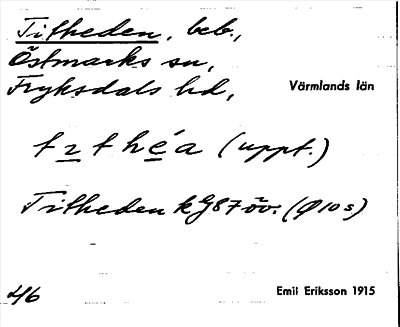 Titheden, beb.,
Östmarks sn,
Fryksdals hd,
Värmlands län
(uppt.)
Titheden kg 87 öv. (Ø 10 s)
46
Emil Eriksson 1915